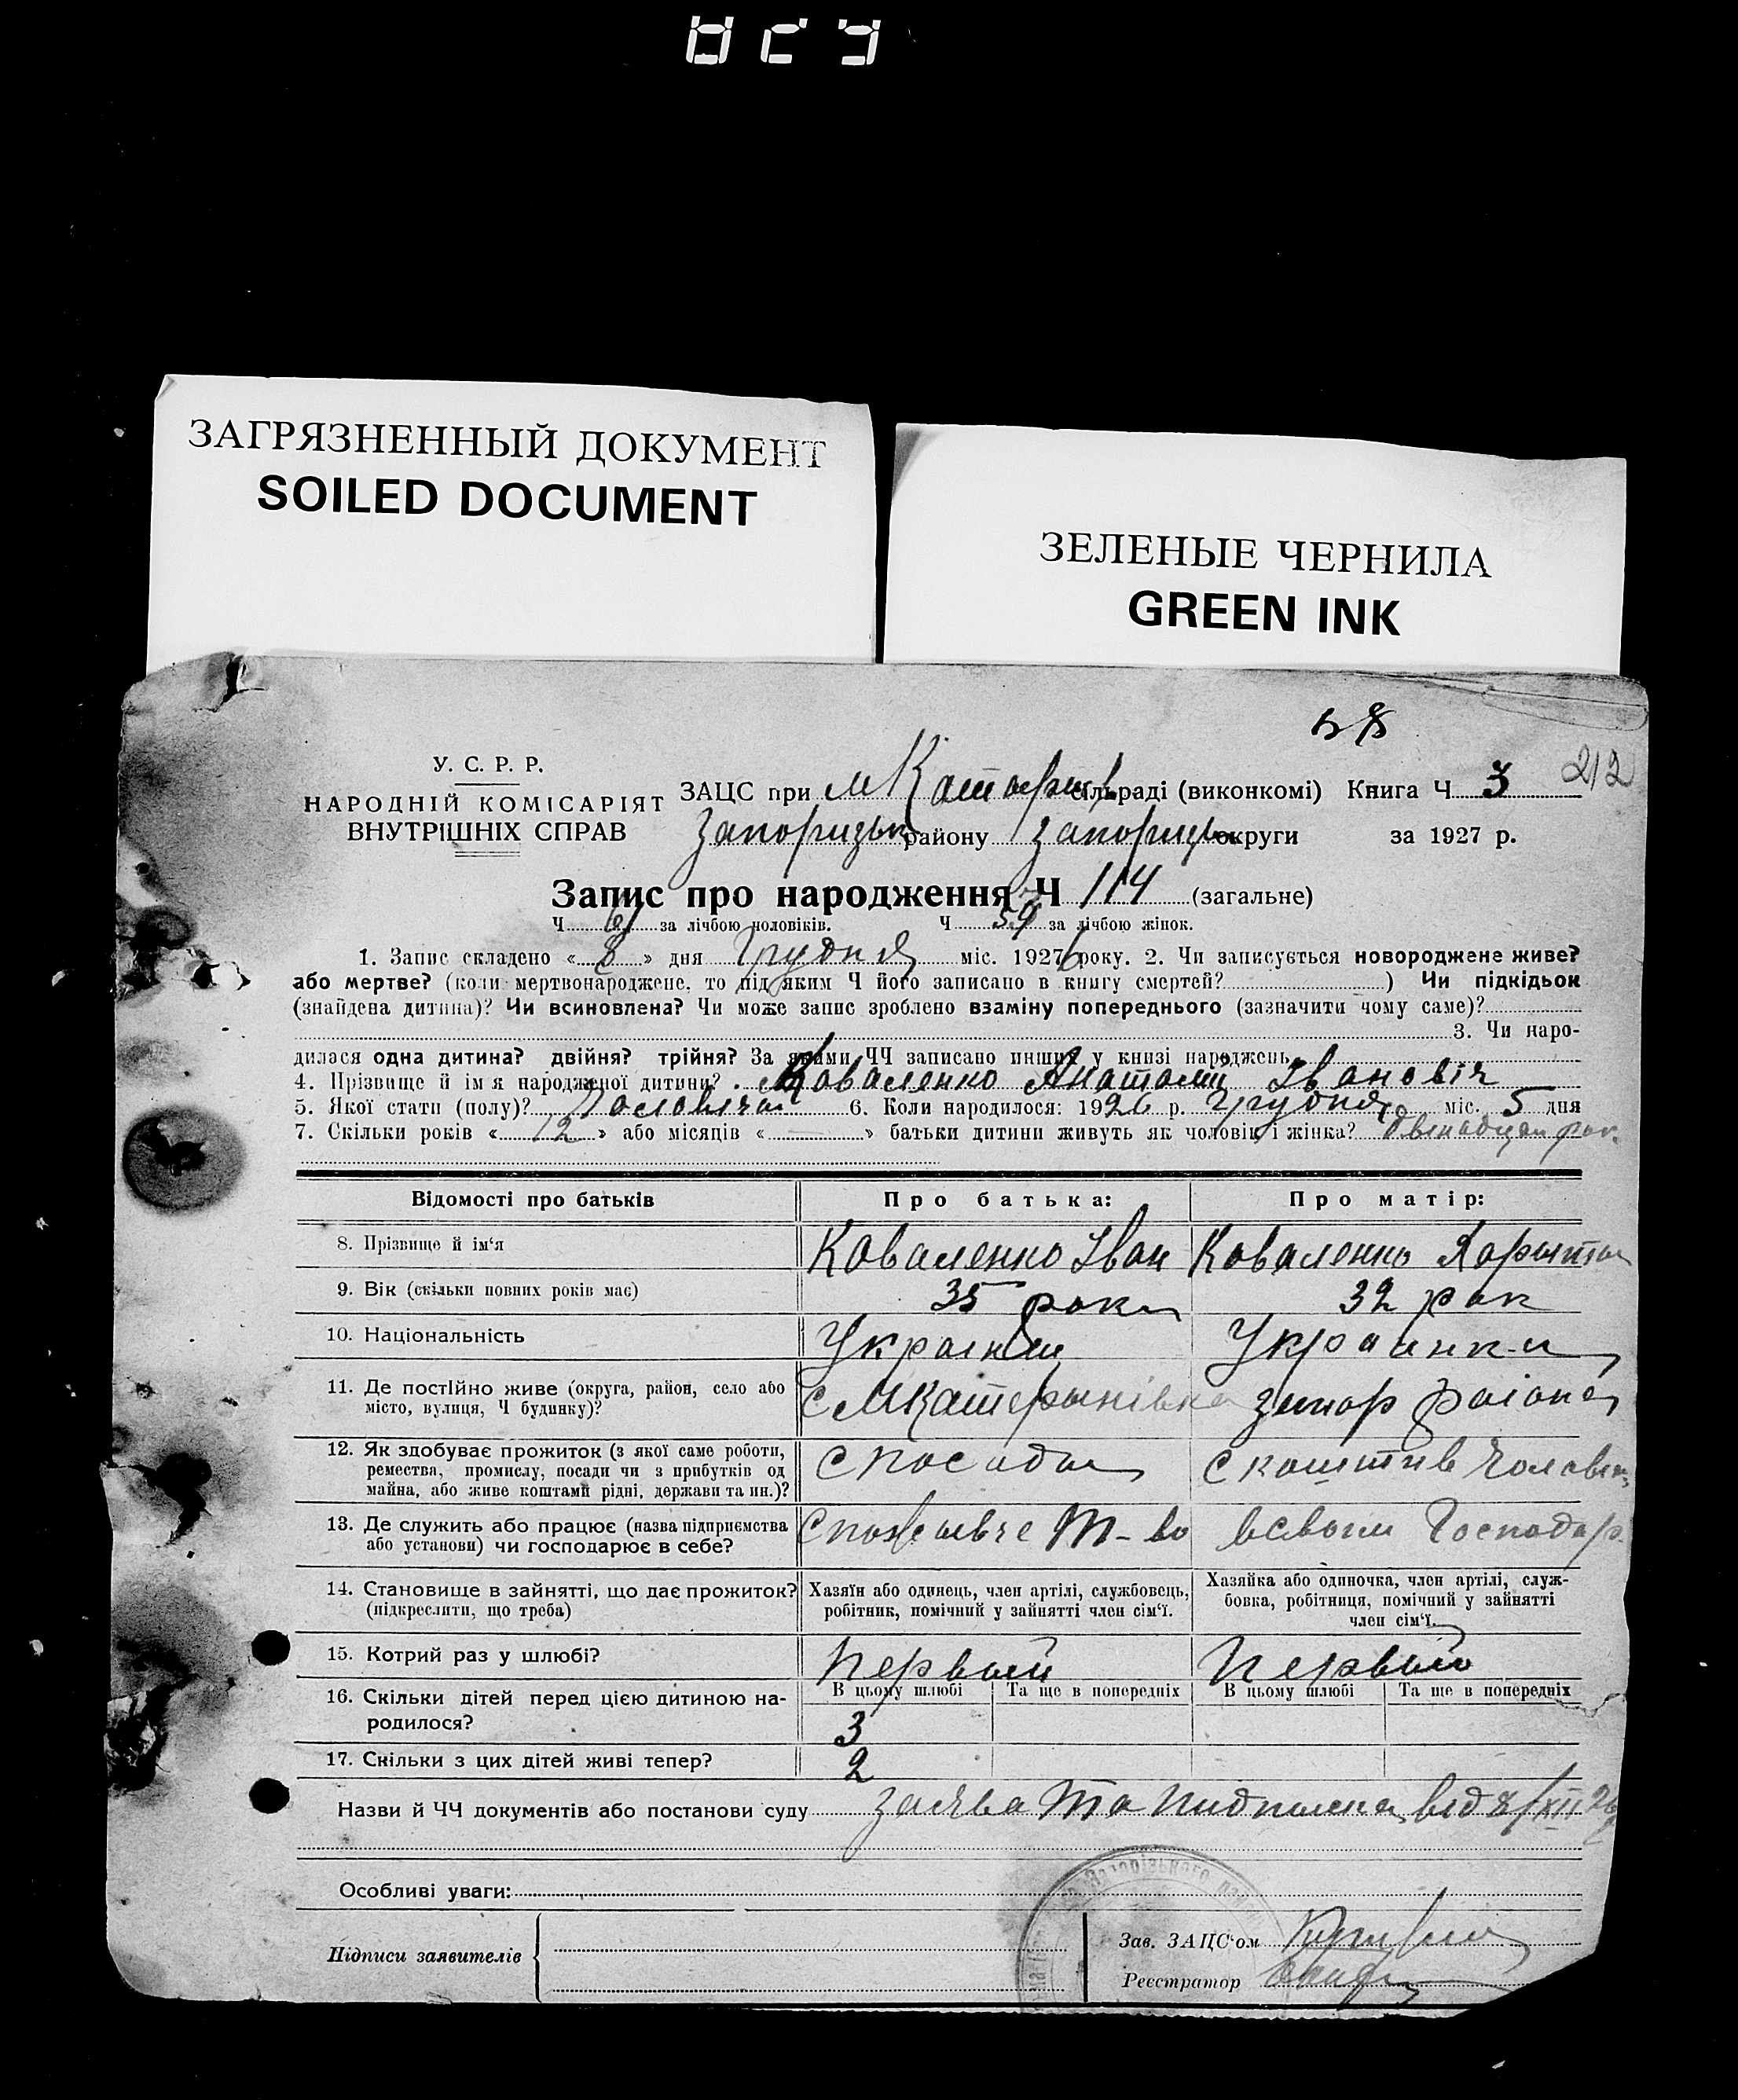 ЗАГРЯЗНЕННЫЙ ДОКУМЕНТ
SOILED DOCUMENT
ЗЕЛЕНЫЕ ЧЕРНИЛА
GREEN INK
212
У. С. Р. Р.
НАРОДНІЙ КОМІСАРІЯТ
ВНУТРІШНІХ СПРАВ
ЗАЦС при сільраді (виконкомі) Книга Ч 3
району округи за 1927 р.
Запис про народження Ч 114 (загальне)
Ч 61 за лічбою чоловіків. Ч за лічбою жінок.
1. Запис складено « 8 » дня Грудня міс. 1926 року. 2. Чи записується новороджене живе?
або мертве? (коли мертвонароджене, то під яким Ч його записано в книгу смертей? ) Чи підкідьок
(знайдена дитина)? Чи всиновлена? Чи може запис зроблено взаміну попереднього (зазначити чому саме)?
3. Чи наро-
дилася одна дитина? двійня? трійня? За якими ЧЧ записано инших у книзі народжень
4. Прізвище й ім я народженої дитини? Коваленко Анатолій Івановіч
5. Якої стати (полу)? 6. Коли народилося: 1926 р. Грудня міс. 5 дня
7. Скільки років « 12 » або місяців « — » батьки дитини живуть як чоловік і жінка?
Відомості про батьків Про батька: Про матір:
8. Прізвище й ім'я Коваленко Іван Коваленко
9. Вік (скільки повних років має) 35 роки 32 рок
10. Національність
11. Де постійно живе (округа, район, село або
місто, вулиця, Ч будинку)?
12. Як здобуває прожиток (з якої саме роботи, с посади
ремества, промислу, посади чи з прибутків од
майна, або живе коштами рідні, держави та ин.)?
13. Де служить або працює (назва підприємства
або установи) чи господарює в себе?
14. Становище в зайнятті, що дає прожиток? Хазяїн або одинець, член артілі, службовець, Хазяйка або одиночка, член артілі, служ-
(підкреслити, що треба) робітник, помічний у зайнятті член сім'ї. бовка, робітниця, помічний у зайнятті
член сім'ї.
15. Котрий раз у шлюбі? первый
16. Скільки дітей перед цією дитиною на- В цьому шлюбі Та ще в попередніх В цьому шлюбі Та ще в попередніх
родилося? 3
17. Скільки з цих дітей живі тепер? 2
Назви й ЧЧ документів або постанови суду заява та від 8/XII 26
Особливі уваги:
Підписи заявителів
Зав. ЗАЦС'ом
Реєстратор